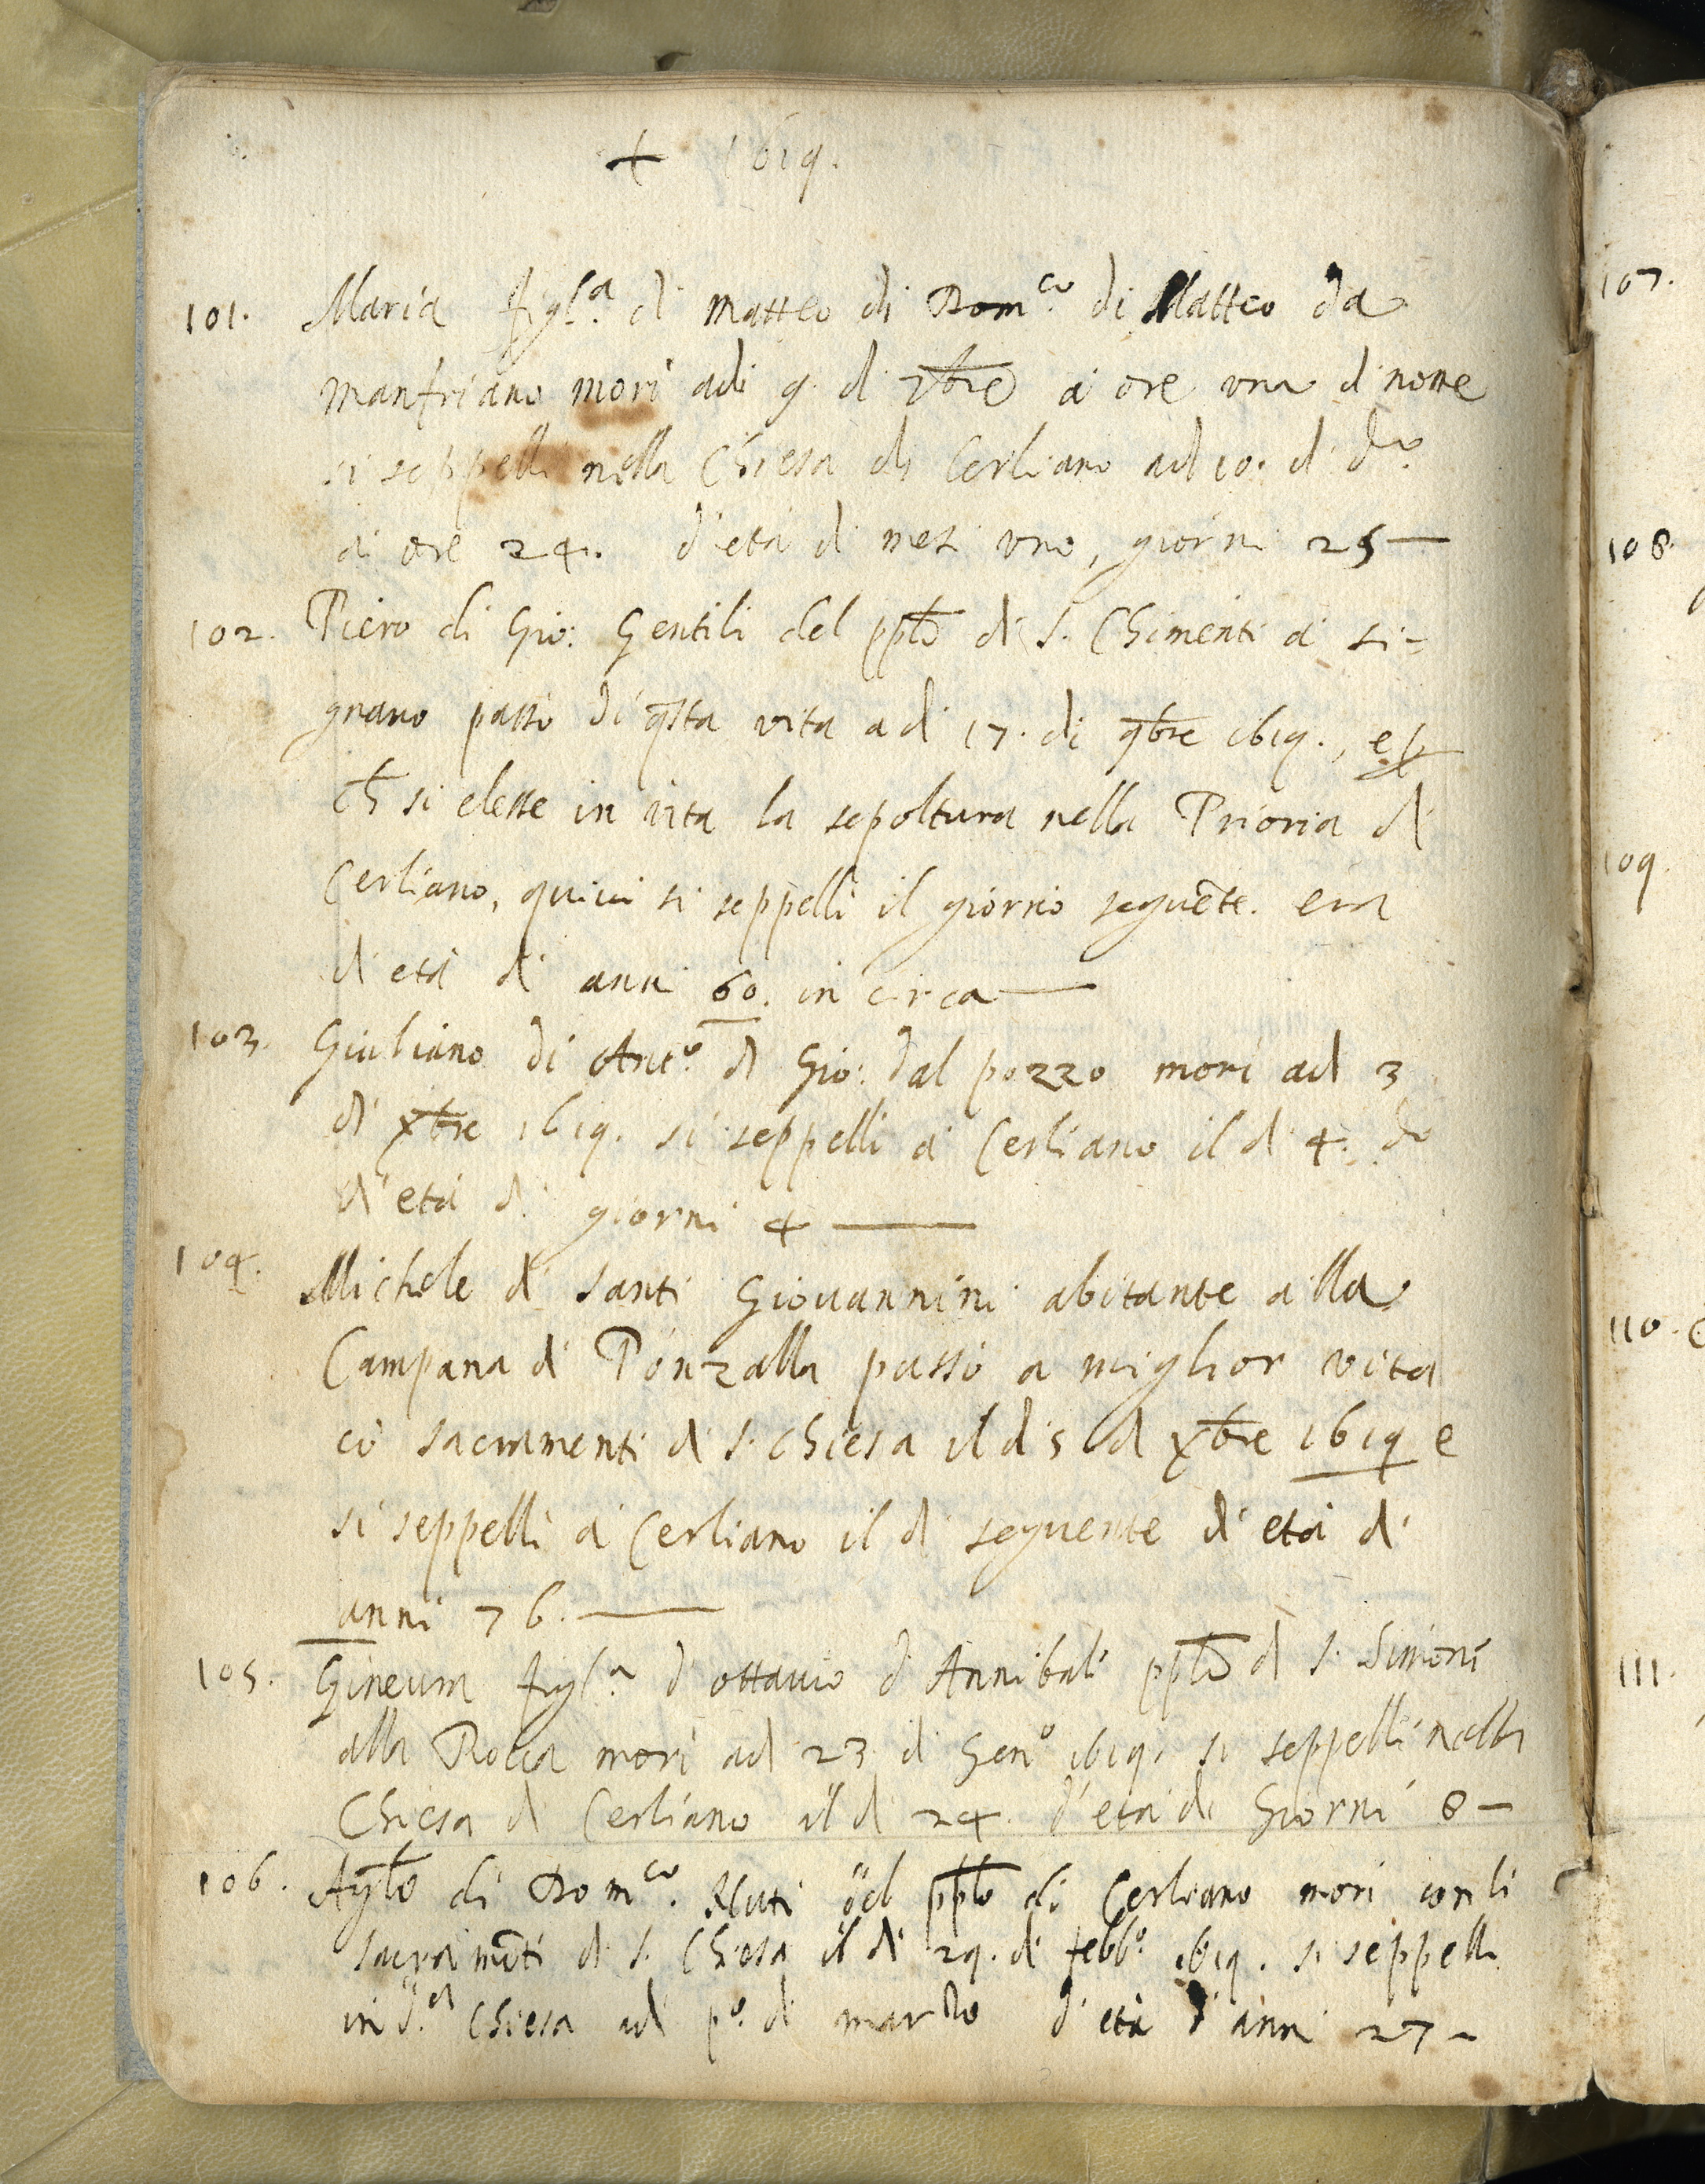 + 1619.
101. Maria figl.ª di Matteo di Dom.co di Matteo da
Manfriano morì adi 9. di 7bre à ore una di notte
si seppellì nella Chiesa di Cerliano adi 10. di d.o
à ore 24. d'età di mesi uno, giorni 25 —
102. Piero di Gio: Gentili del pplo di S. Chimenti à Si=
gnano passò di qsta vita adi 17. di 9bre 1619., e p
ch si elesse in vita la sepoltura nella Prioria di
Cerliano, quivi si seppellì il giorno seguẽte. era
d'età di anni 60. in circa —
103. Giuliano di Ant.o di Gio: dal pozzo morì adi 3
di Xbre 1619. si seppellì à Cerliano il dì 4. d.o
d'età di giorni 4 —
104. Michele di Santi Giovannini abitante alla
Campana di Ponzalla passò a miglior vita
cõ sacramenti di S. Chiesa il dì 5 di Xbre 1619 e
si seppellì à Cerliano il dì seguente d'età di
anni 76. —
105. Gineura figl.ª d'ottavio d'Annibale pplo di S. Simone
alla Rocca morì adi 23 di Gen.o 1619. si seppellì nella
Chiesa di Cerliano il dì 24. d'età di Giorni 8 —
106. Aglo di Dom.co Nuti del pplo di Cerliano morì con li
sacramẽti di S. Chiesa il dì 29. di febb.o 1619. si seppellì
in d.ª Chiesa adi p.o di marzo d'età d'anni 27 —
107.
108.
109.
110.
111.